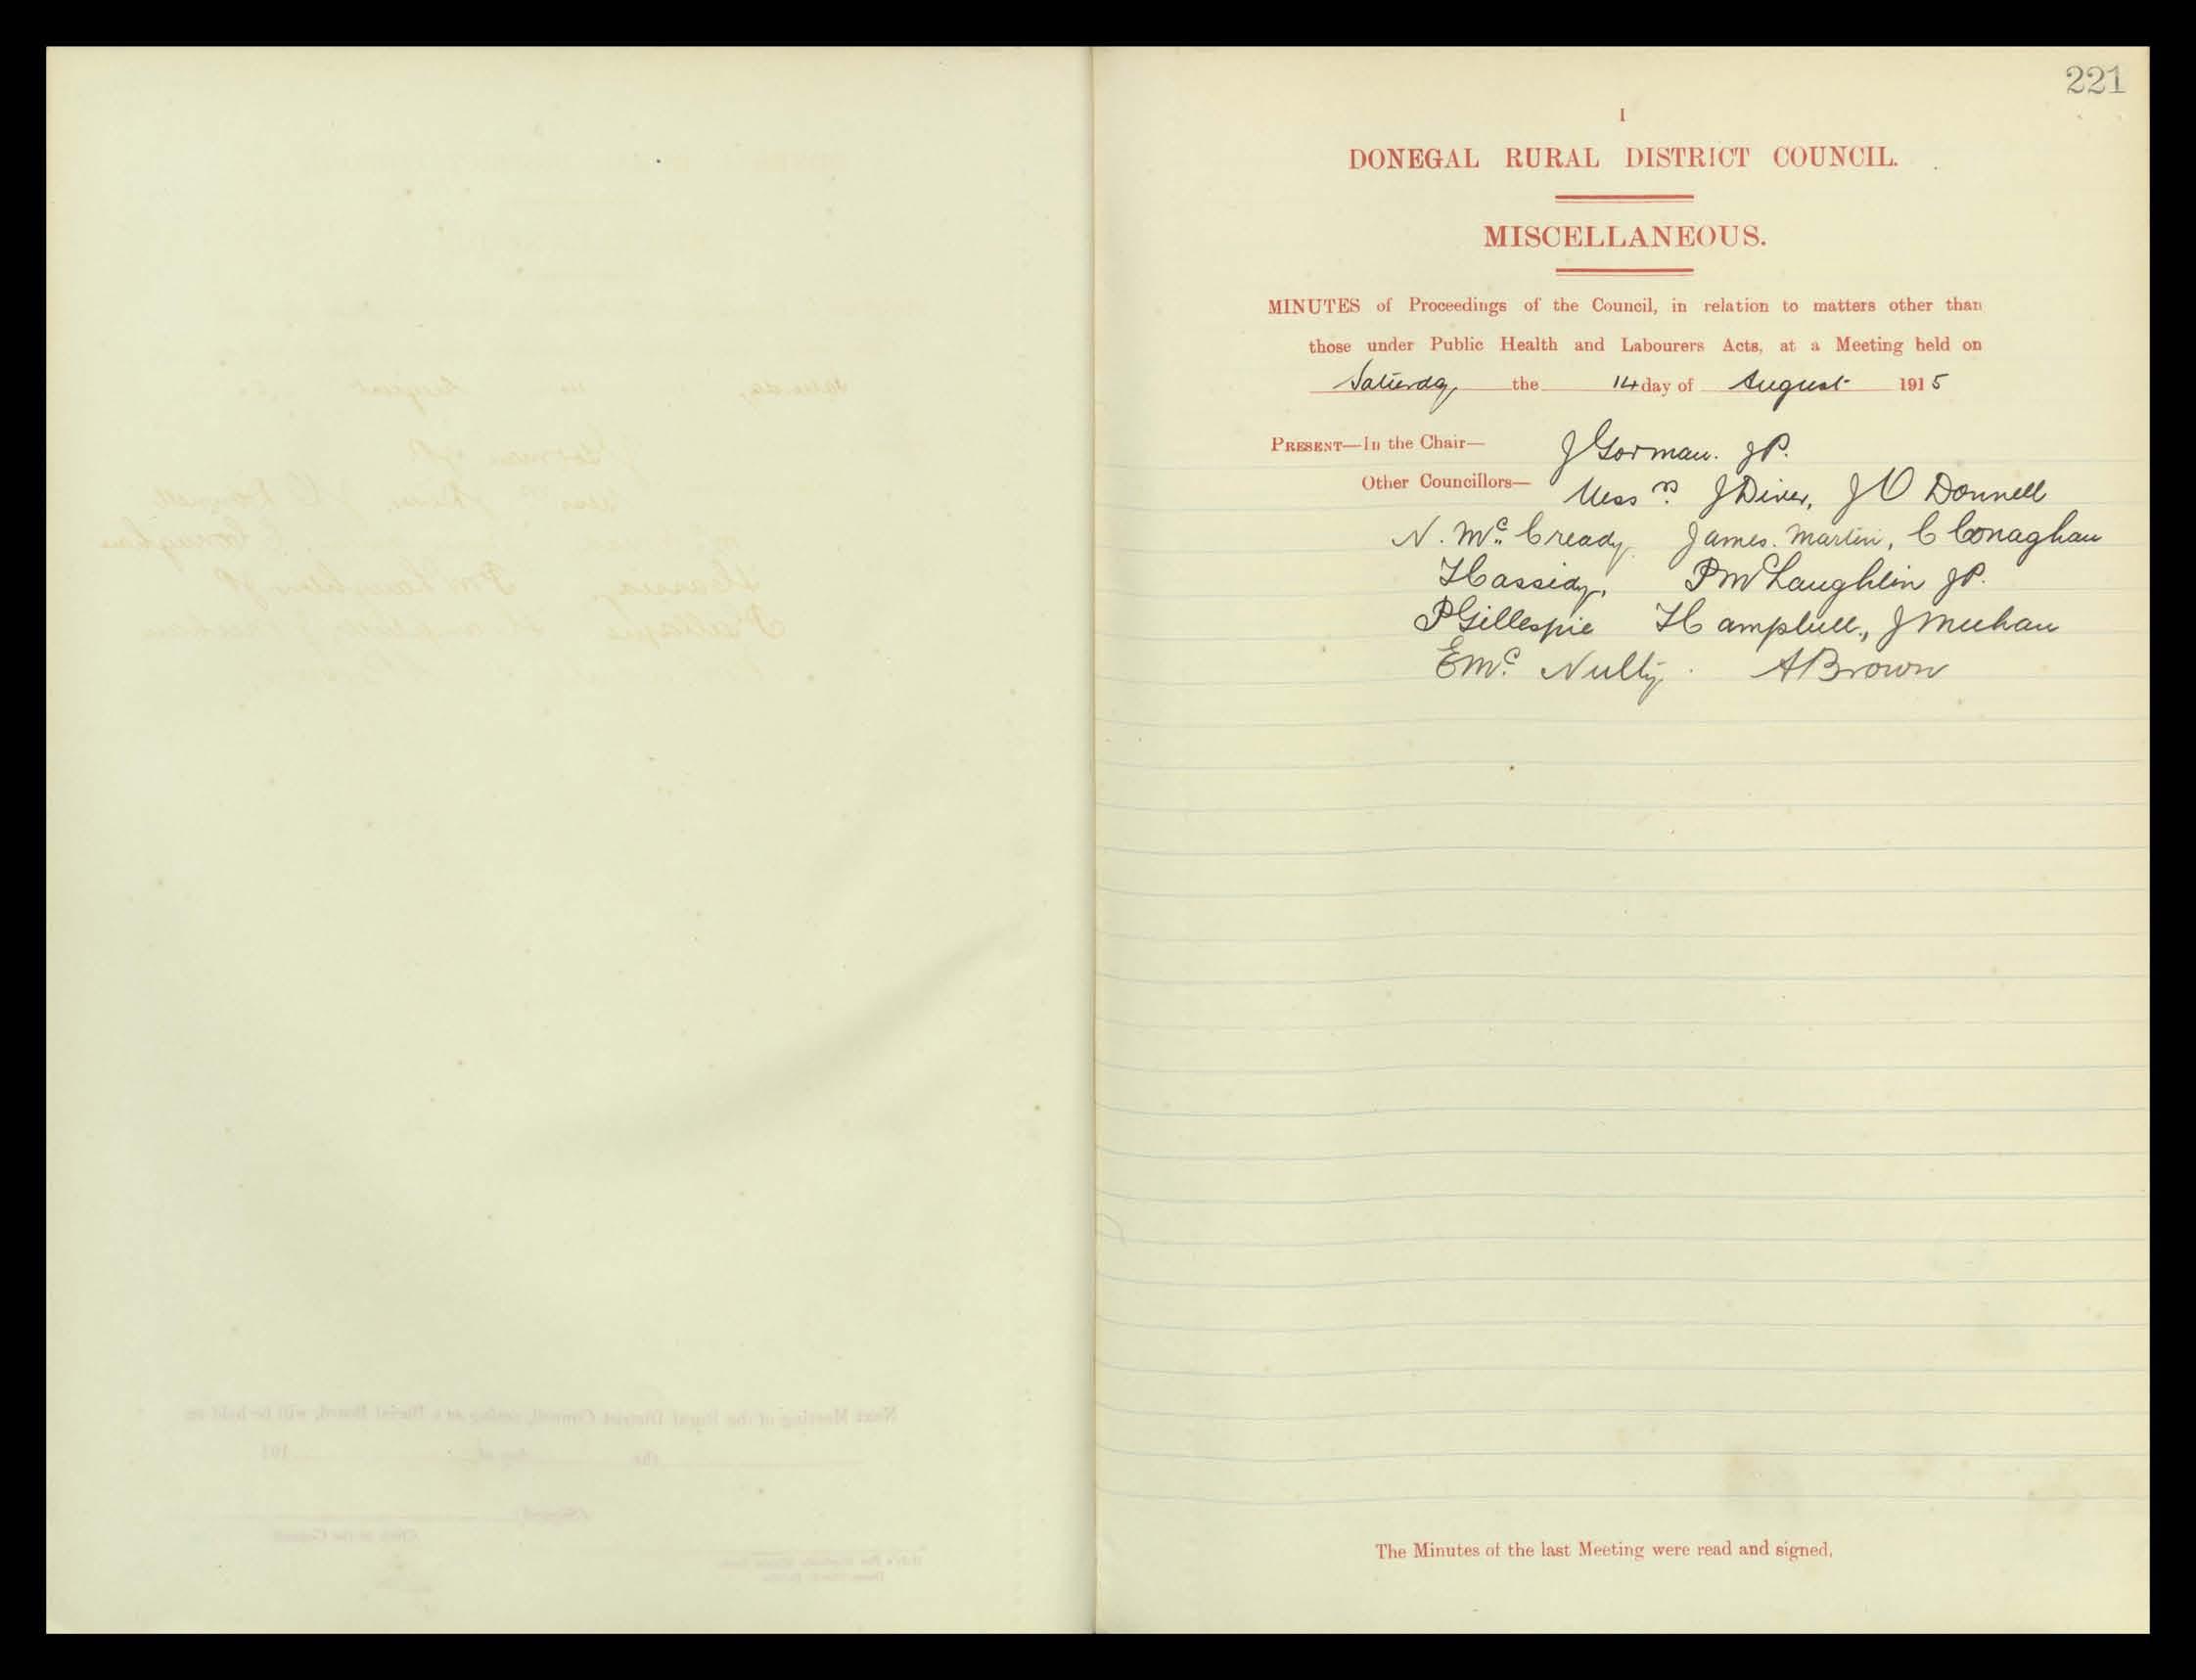 221
1
DONEGAL RURAL DISTRICT COUNCIL.
MISCELLANEOUS.
MINUTES of Proceedings of the Council, in relation to matters other than
those under Public Health and Labourers Acts, at a Meeting held on
Saturday, the 14 day of August 1915
PRESENT—In the Chair— J Gorman. JP.
Other Councillors— Messrs. J Diver, J O Donnell
N. Mc. Cready James. Martin, C Conaghan
H Cassidy, P Mc Laughlin JP.
P Gillespie H Campbell, J Meehan
E Mc. Nulty. A Brown
The Minutes of the last Meeting were read and signed.